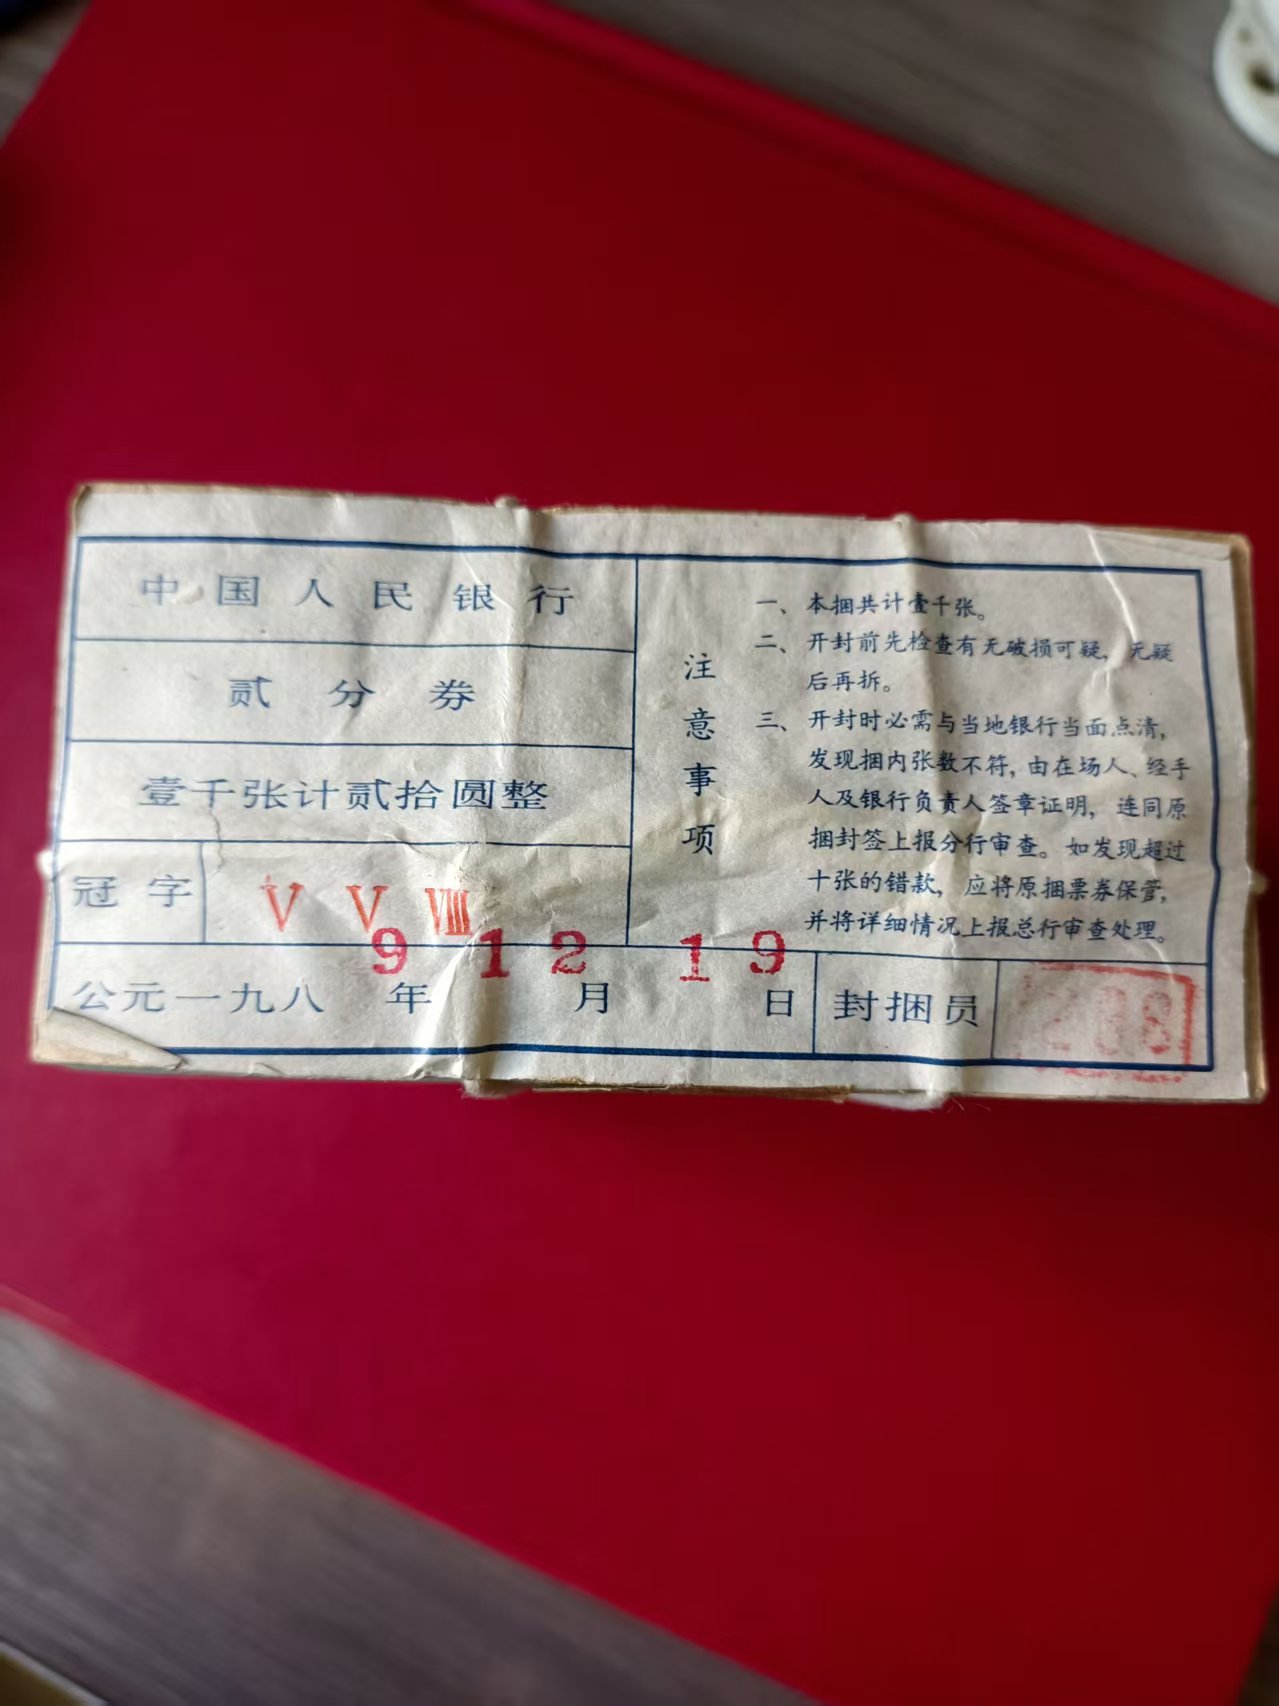 中国人民银行
贰分券
壹千张计贰拾圆整
冠字 V V VIII
公元一九八9年12月19日
封捆员 208
注意事项
一、本捆共计壹千张。
二、开封前先检查有无破损可疑，无疑
后再拆。
三、开封时必需与当地银行当面点清，
发现捆内张数不符，由在场人、经手
人及银行负责人签章证明，连同原
捆封签上报分行审查。如发现超过
十张的错款，应将原捆票券保管，
并将详细情况上报总行审查处理。